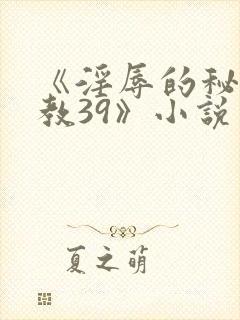 《淫辱的秘
教39》小说
夏之萌